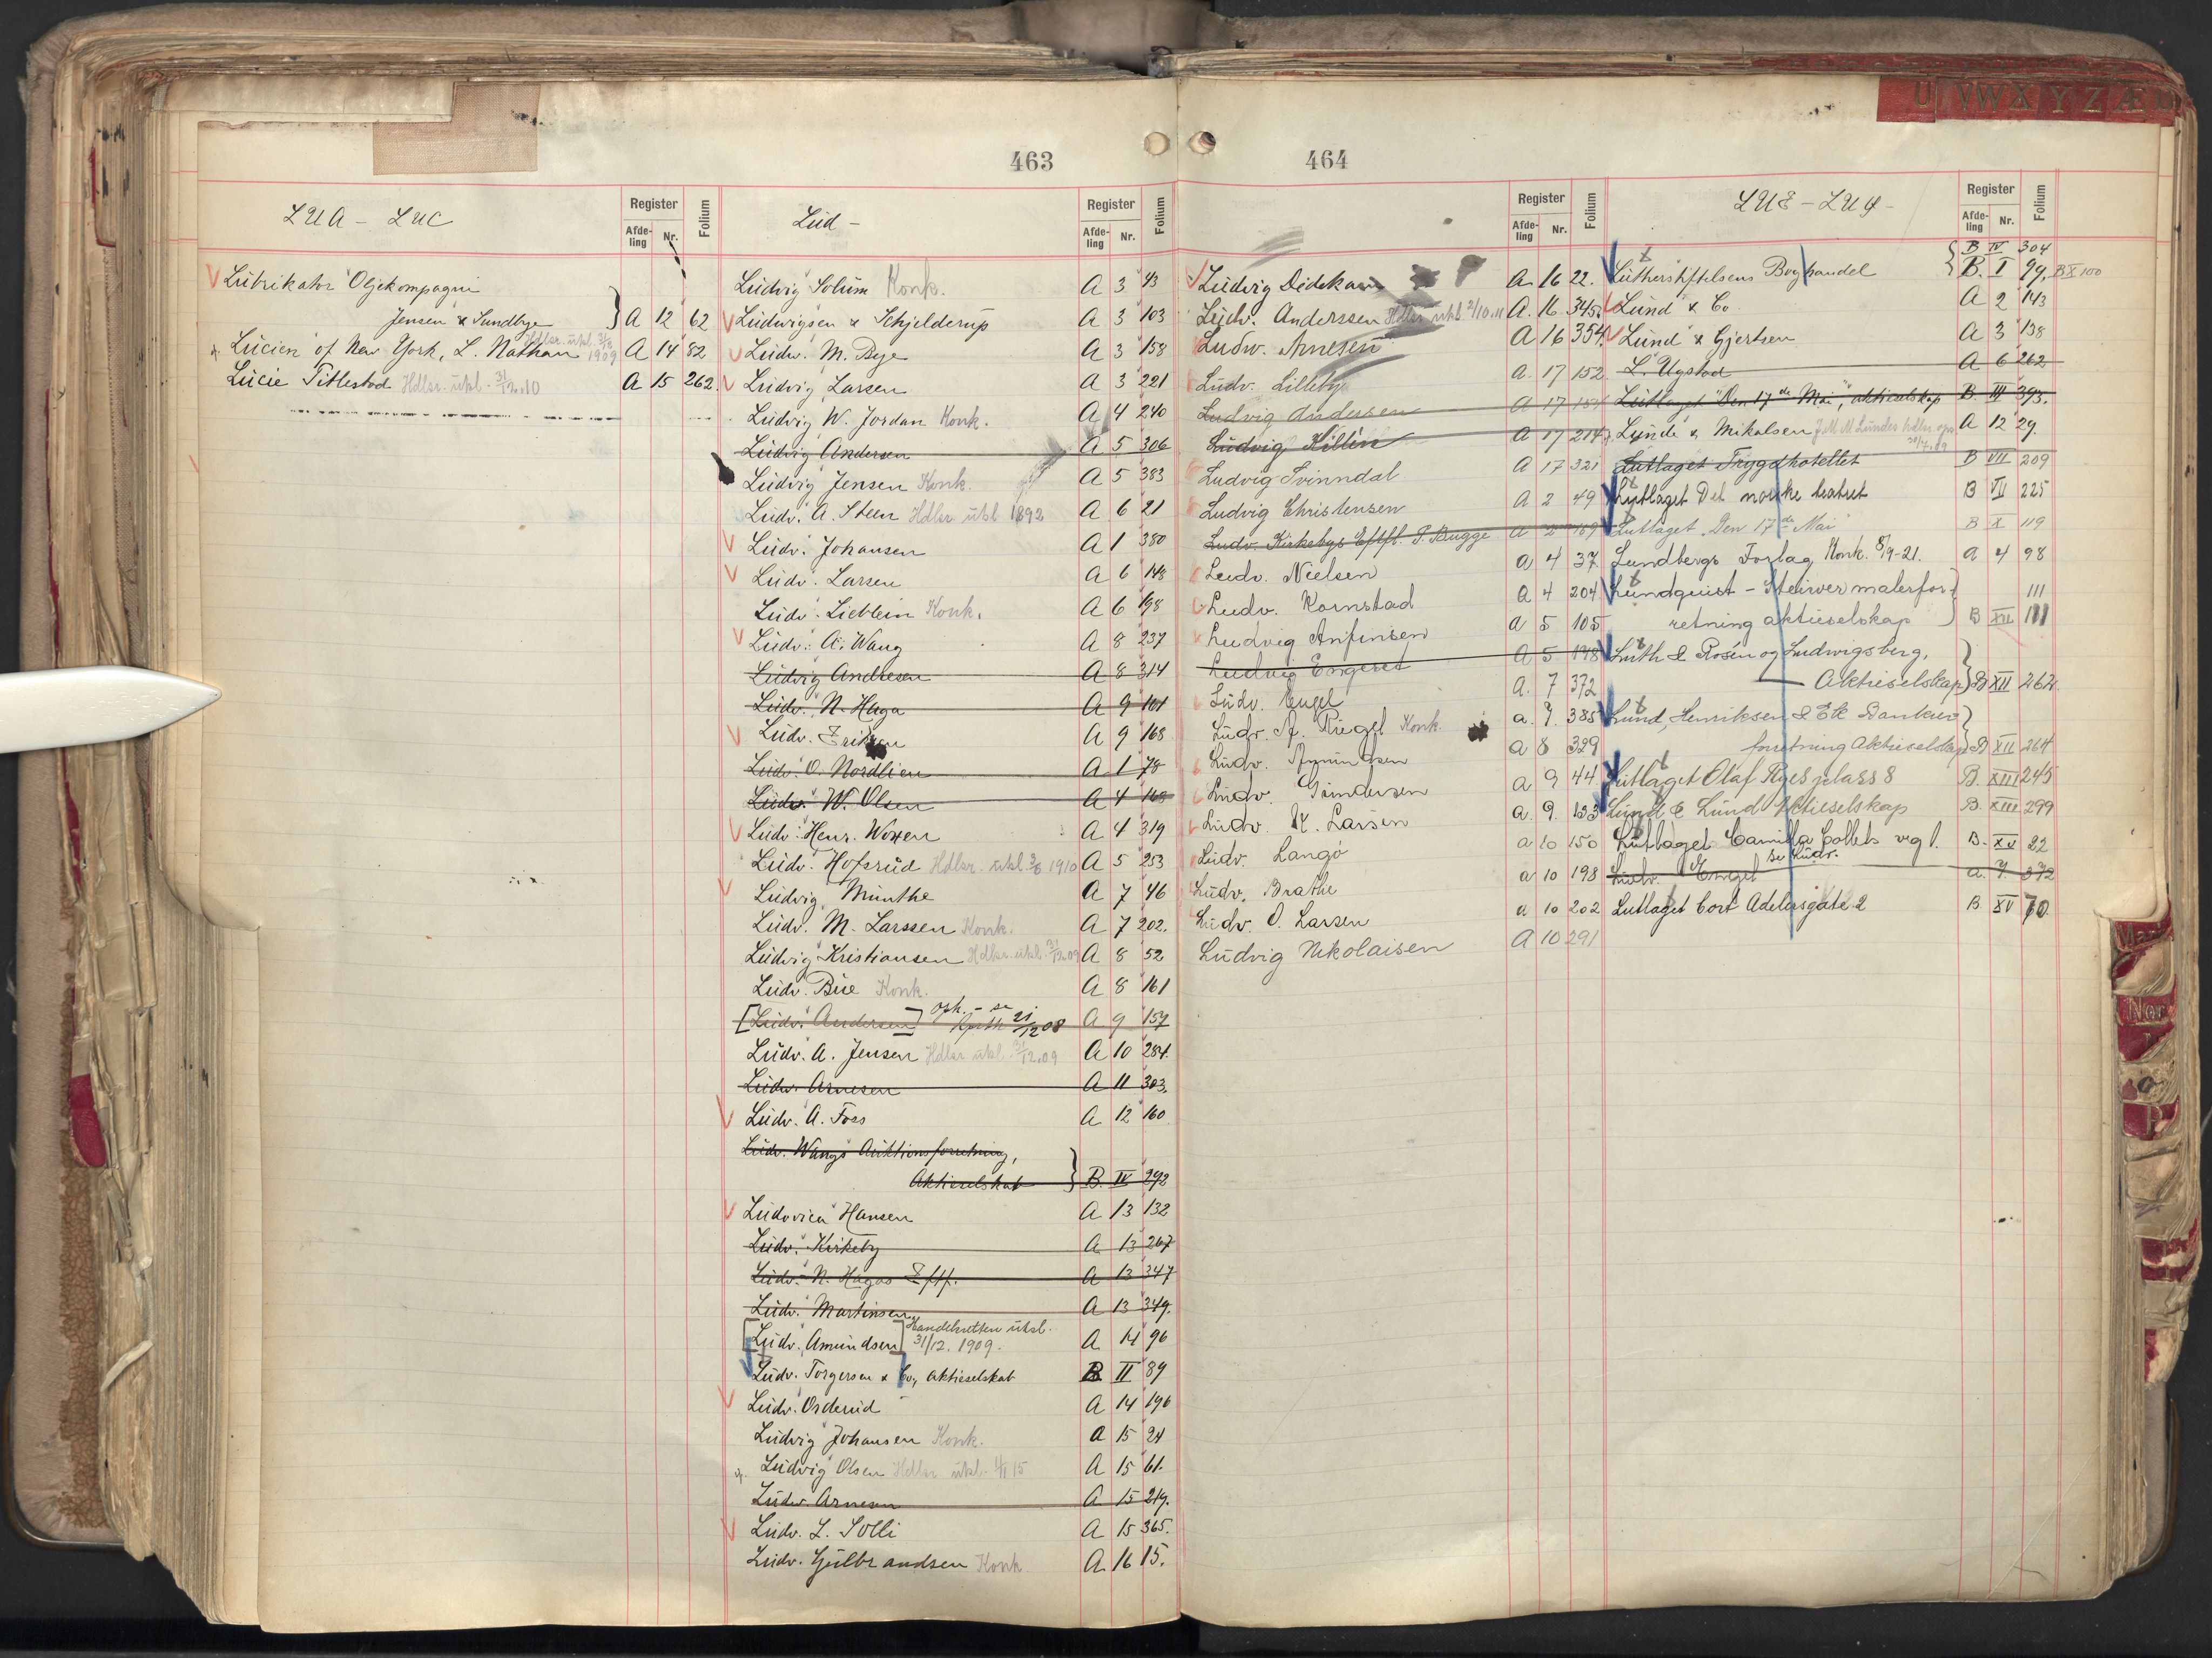 U V W X Y Z Æ
463
LUA - LUC
Register
Afde-
ling
Nr.
Folium
Lubrikator Oljekompagni
Jensen & Sundbye } A 12 62
Lucien of New York, L. Nathan Hdlsr. utsl. 31/8 1909 A 14 82
Lucie Tittestad Hdlsr. utsl. 31/12.10 A 15 262.
Lud -
Register
Afde-
ling
Nr.
Folium
Ludvig Solum Konk. A 3 43
Ludwigsen & Schjelderup A 3 103
Ludv. M. Bye A 3 158
Ludvig Larsen A 3 221
Ludvig W. Jordan Konk. A 4 240
Ludvig Andersen A 5 306
Ludvig Jensen Konk. A 5 383
Ludv. A. Steen Hdlsr utsl 1892 A 6 21
Ludv. Johansen A 1 380
Ludv. Larsen A 6 148
Ludv. Lieblein Konk. A 6 198
Ludv. A. Wang A 8 237
Ludvig Andresen A 8 314
Ludv. N. Haga A 9 101
Ludv. Eriksen A 9 168
Ludv. O. Nordlien A 1 78
Ludv. W. Olsen A 4 169
Ludv. Henr. Woxen A 4 319
Ludv. Hofsrud Hdlsr. utsl. 1910 A 5 253
Ludvig Munthe A 7 46
Ludv. M. Larssen Konk. A 7 202.
Ludvig Kristiansen Hdlsr. utsl. 31/12.09 A 8 52
Ludv. Bue Konk. A 8 161
[Ludv. Andersen] oph. - se 21/12 08 A 9 157
Ludv. A. Jensen Hdlsr utsl. 31/12.09 A 10 284.
Ludv. Arnesen A 11 303.
Ludv. A. Foss A 12 160
Ludv. Wangs Auktionsforretning,
Aktieselskab } B. IV 292
Ludovica Hansen A 13 132
Ludv. Kirkeby A 13 267
Ludv. N. Hagas Eftf. A 13 347
Ludv. Martinsen A 13 349.
[Ludv. Amundsen] Handelsretten utsl. 31/12. 1909. A 14 96
Ludv. Torgersen & Co., Aktieselskab B II 89
Ludv. Orderud A 14 196
Ludvig Johansen Konk. A 15 24
Ludvig Olsen Hdlsr. utsl. 4/1 15 A 15 61.
Ludv. Arnesen A 15 219.
Ludv. L. Solli A 15 365.
Ludv. Gulbrandsen Konk A 16 15.
464
Register
Afde-
ling
Nr.
Folium
Ludvig Didekam A 16 22.
Ludv. Anderssen Hdlsr utsl 2/10.11 A. 16 345.
Ludw. Arnesen A 16 354.
Ludv. Lilleby A. 17 152
Ludvig Andersen A 17 154
Ludvig Killen A 17 214
Ludvig Svinndal A 17 321
Ludvig Christensen A 2 49
Ludv. Kirkebys Eftfl. P. Bugge A 2 169
Ludv. Nielsen A 4 37
Ludv. Kornstad A 4 204
Ludvig Anfinsen A 5 105
Ludvig Engeset A 5 148
Ludv. Engel A. 7 372
Ludv. A. Riegel Konk. a. 7. 385
Ludv. Amundsen a 8 329
Ludv. Gundersen a 9 44
Ludv. K. Larsen a. 9. 153
Ludv. Langö a 10 150
Ludv. Brathe a 10 198
Ludv. O. Larsen a 10 202
Ludvig Nikolaisen A 10 291
LUE - LUY -
Register
Afde-
ling
Nr.
Folium
{ B IV 304
Lutherstiftelsens Boghandel { B. I 99, B X 100
Lund & Co A 2 143
Lund & Gjertsen A 3 138
L. Ugstad A 6 262
Lutlaget "Den 17de Mai", aktieselskap B. III 393.
Lunde & Mikalsen A 12 29.
Lutlaget Trygdhotellet B VII 209
Lutlaget Det norske teatret B VII 225
Lutlaget Den 17de Mai B X 119
Lundbergs Forlag Konk. 8/9-21. A 4 98
Lundquist - Steiwer malerfor- } 111
retning aktieselskap } B XII 111
Luth & Rosén og Ludwigsberg, }
Aktieselskap } B XII 262
Lund, Henriksen & Elk Bankier }
forretning Aktieselskap B XII 264
Lutlaget Olaf Ryes plass 8 B. XIII 245
Lund & Lund Aktieselskap B. XIII 299
Lutlaget Camilla Colletts veg 1. B. XV 22
Ludv. Engel se Ludv. a. 7 372
Lutlaget Cort Adelersgate 2 B XV 70